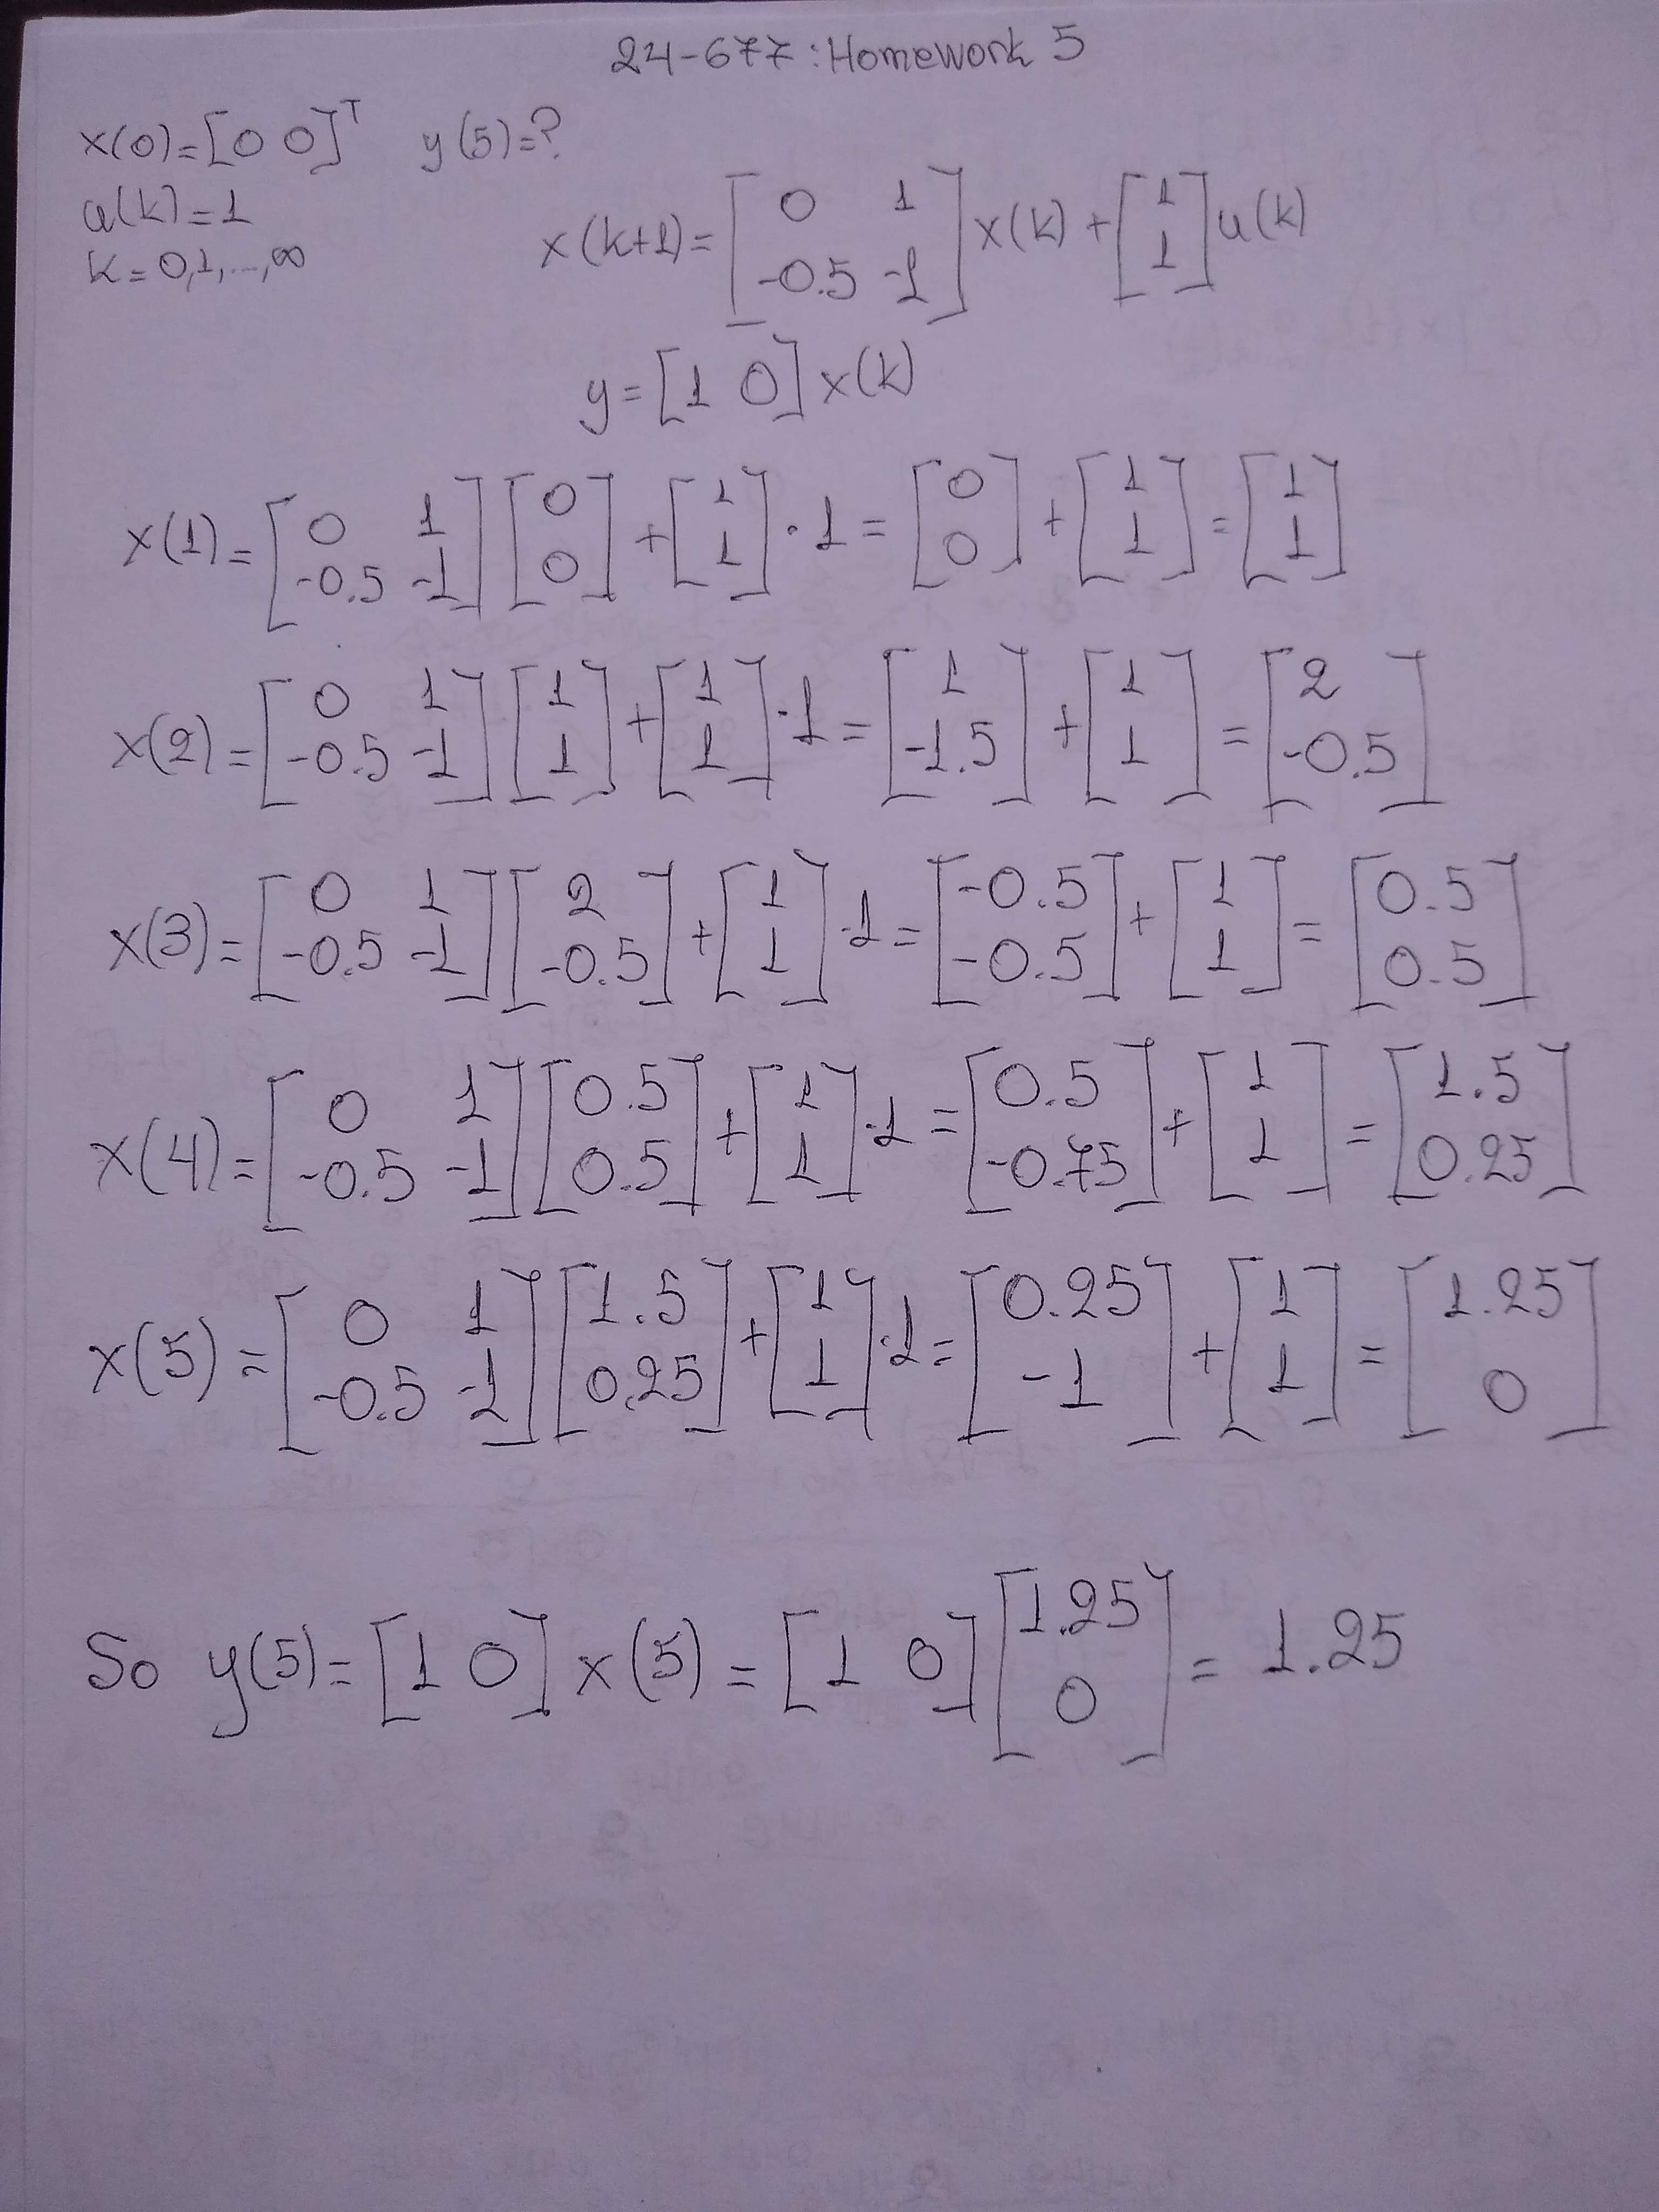 24-677: Homework 5
x(0)=[0 0]^T y(5)=?
u(k)=1
k=0,1,...,∞
x(k+1)=[0 1; -0.5 -1]x(k)+[1; 1]u(k)
y=[1 0]x(k)
x(1)=[0 1; -0.5 -1][0; 0]+[1; 1]·1=[0; 0]+[1; 1]=[1; 1]
x(2)=[0 1; -0.5 -1][1; 1]+[1; 1]·1=[1; -1.5]+[1; 1]=[2; -0.5]
x(3)=[0 1; -0.5 -1][2; -0.5]+[1; 1]·1=[-0.5; -0.5]+[1; 1]=[0.5; 0.5]
x(4)=[0 1; -0.5 -1][0.5; 0.5]+[1; 1]·1=[0.5; -0.75]+[1; 1]=[1.5; 0.25]
x(5)=[0 1; -0.5 -1][1.5; 0.25]+[1; 1]·1=[0.25; -1]+[1; 1]=[1.25; 0]
So y(5)=[1 0]x(5)=[1 0][1.25; 0]=1.25